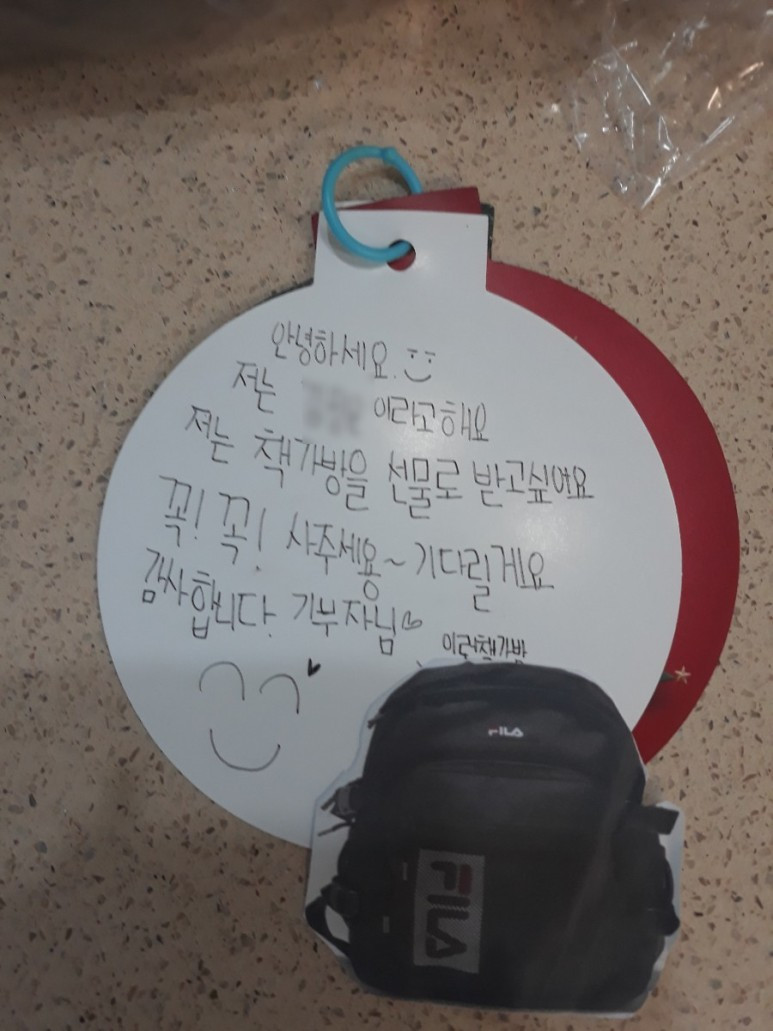 안녕하세요.
저는 이라고해요
저는 책가방을 선물로 받고싶어요
꼭! 꼭! 사주세용~ 기다릴게요
감사합니다. 기부자님♡
이런책가방
FILA
FILA